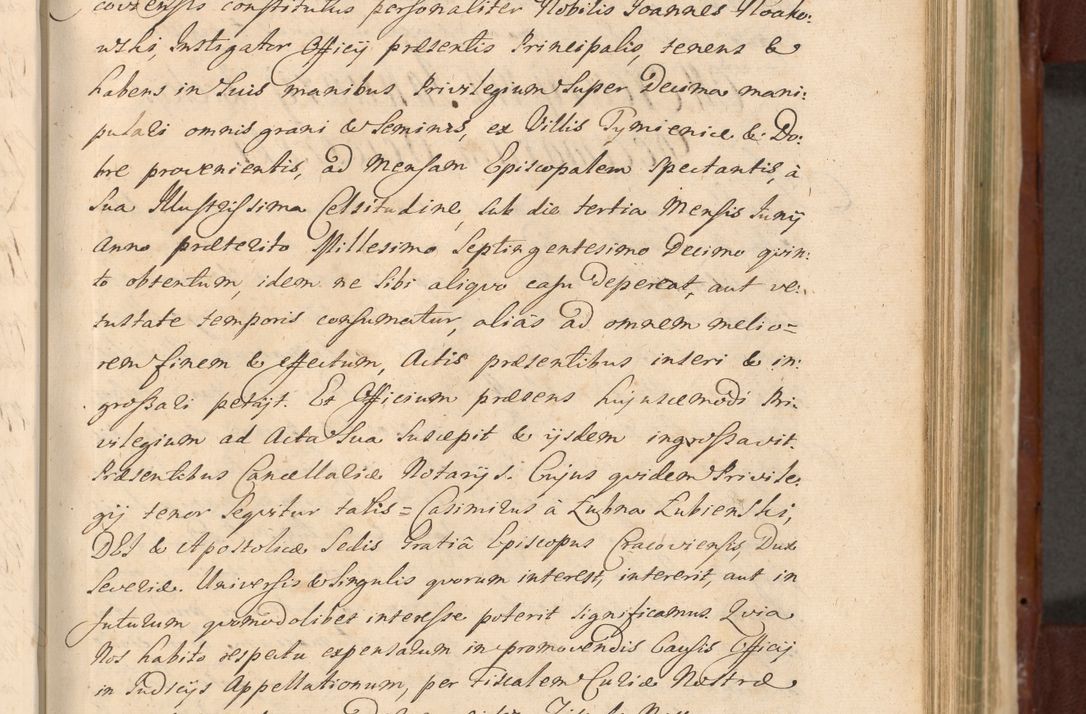 coviensis constitutus personaliter Nobilis Joannes Noako:
wski, Instigator Officij præsentis Principalis, tenens &
habens in Suis manibus Privilegium Super Decima mani:
pulari omnis grani & Seminis, ex Villis Tymienice & Do:
bre provenientis, ad Mensam Episcopalem Spectantis, à
Sua Illustrissima Celsitudine, sub die tertia Mensis Junij
Anno præterito Millesimo Septingentesimo Decimo qvin:
to obtentum, idem ne Sibi aliqvo casu depereat, aut ve:
tustate temporis consumatur, aliàs ad omnem melio=
rem finem & effectum, Actis præsentibus inseri & in:
grossari petijt. Et Officium præsens hujuscemodi Pri:
vilegium ad Acta Sua Suscepit & ijsdem ingrossavit.
Præsentibus Cancellariæ Notarijs. Cujus qvidem Privile:
gij tenor Seqvitur talis = Casimirus à Łubna Łubienski,
DEI & Apostolicæ Sedis Gratiâ Episcopus Cracoviensis, Dux
Severiæ. Universis & Singulis qvorum interest, intererit, aut in
futurum qvomodolibet interesse poterit significamus. Qvia
Nos habito respectu expensarum in promovendis Causis Officij
in Judicijs Appellationum, per Fiscalem Curiæ Nostræ